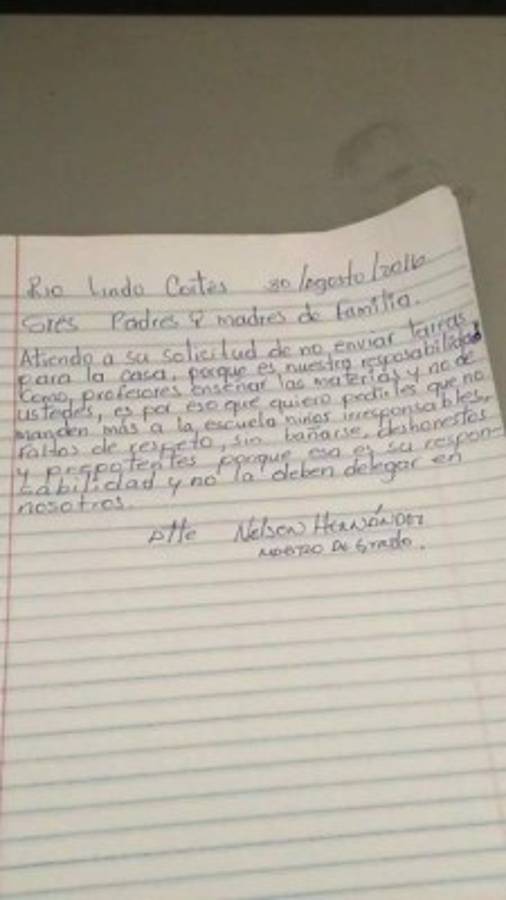 Rio Lindo Cortés 30/agosto/2016
Sres Padres y madres de familia.
Atiendo a su solicitud de no enviar tareas
para la casa, porque es nuestra resposabilidad
como, profesores enseñar las materias y no de
ustedes, es por eso que quiero pedirles que no
manden más a la escuela niños irresponsables,
faltos de respeto, sin bañarse, deshonestos
y prepotentes porque esa es su respon-
sabilidad y no la deben delegar en
nosotros.
Atte Nelson Hernández
Maestro de Grado.